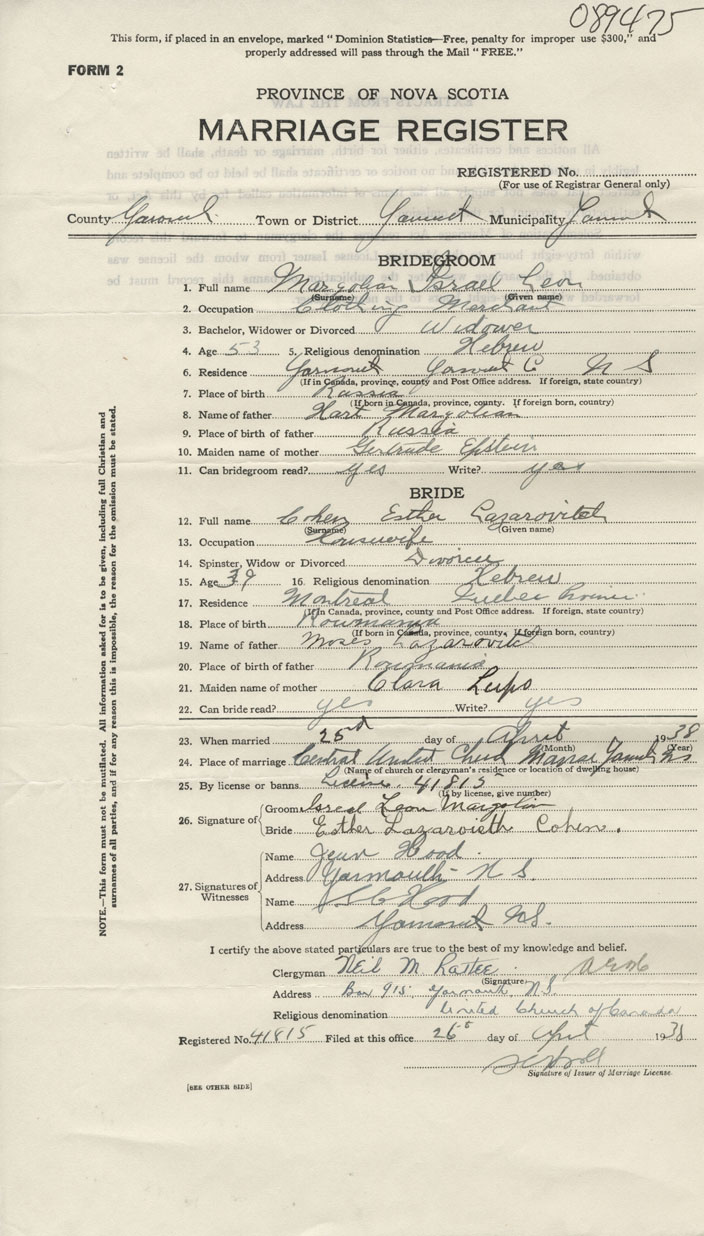 089475
This form, if placed in an envelope, marked "Dominion Statistics—Free, penalty for improper use $300," and
properly addressed will pass through the Mail "FREE."
FORM 2
PROVINCE OF NOVA SCOTIA
MARRIAGE REGISTER
REGISTERED No.
(For use of Registrar General only)
County Yarmouth Town or District Yarmouth Municipality Yarmouth
BRIDEGROOM
1. Full name Margolian Israel Leon
(Surname) (Given name)
2. Occupation Clothing Merchant
3. Bachelor, Widower or Divorced Widower
4. Age 53 5. Religious denomination Hebrew
6. Residence Yarmouth Yarmouth C N S
(If in Canada, province, county and Post Office address. If foreign, state country)
7. Place of birth Russia
(If born in Canada, province, county. If foreign born, country)
8. Name of father Hart Margolian
9. Place of birth of father Russia
10. Maiden name of mother Gertrude Epstein
11. Can bridegroom read? yes Write? yes
BRIDE
12. Full name Cohen Esther Lazarovitch
(Surname) (Given name)
13. Occupation Housewife
14. Spinster, Widow or Divorced Divorcee
15. Age 39 16. Religious denomination Hebrew
17. Residence Montreal Quebec Province
(If in Canada, province, county and Post Office address. If foreign, state country)
18. Place of birth Roumania
(If born in Canada, province, county. If foreign born, country)
19. Name of father Moses Lazarovitch
20. Place of birth of father Roumania
21. Maiden name of mother Clara Lupo
22. Can bride read? yes Write? yes
23. When married 25 day of April 1938
(Month) (Year)
24. Place of marriage Central United Church Manse Yarmouth NS
(Name of church or clergyman's residence or location of dwelling house)
25. By license or banns License 41815
(If by license, give number)
26. Signature of
Groom Israel Leon Margolian
Bride Esther Lazarovitch Cohen.
27. Signatures of Witnesses
Name Jean Hood
Address Yarmouth - N S.
Name Hood
Address Yarmouth NS.
I certify the above stated particulars are true to the best of my knowledge and belief.
Clergyman Neil M.
(Signature)
Address Box 915, Yarmouth, N.S.
Religious denomination United Church of Canada
Registered No. 41815 Filed at this office 26 day of April 1938
Signature of Issuer of Marriage License.
[SEE OTHER SIDE]
NOTE.—This form must not be mutilated. All information asked for is to be given, including full Christian and
surnames of all parties, and if for any reason this is impossible, the reason for the omission must be stated.